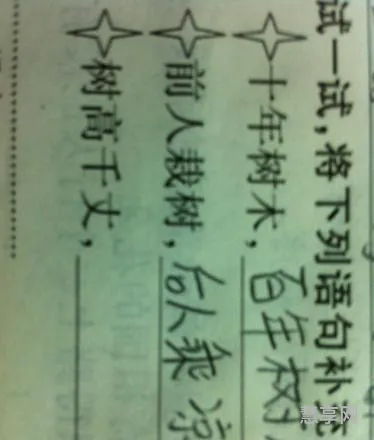 试一试，将下列语句补
十年树木，百年树
前人栽树，后人乘凉
树高千丈，
慧享网